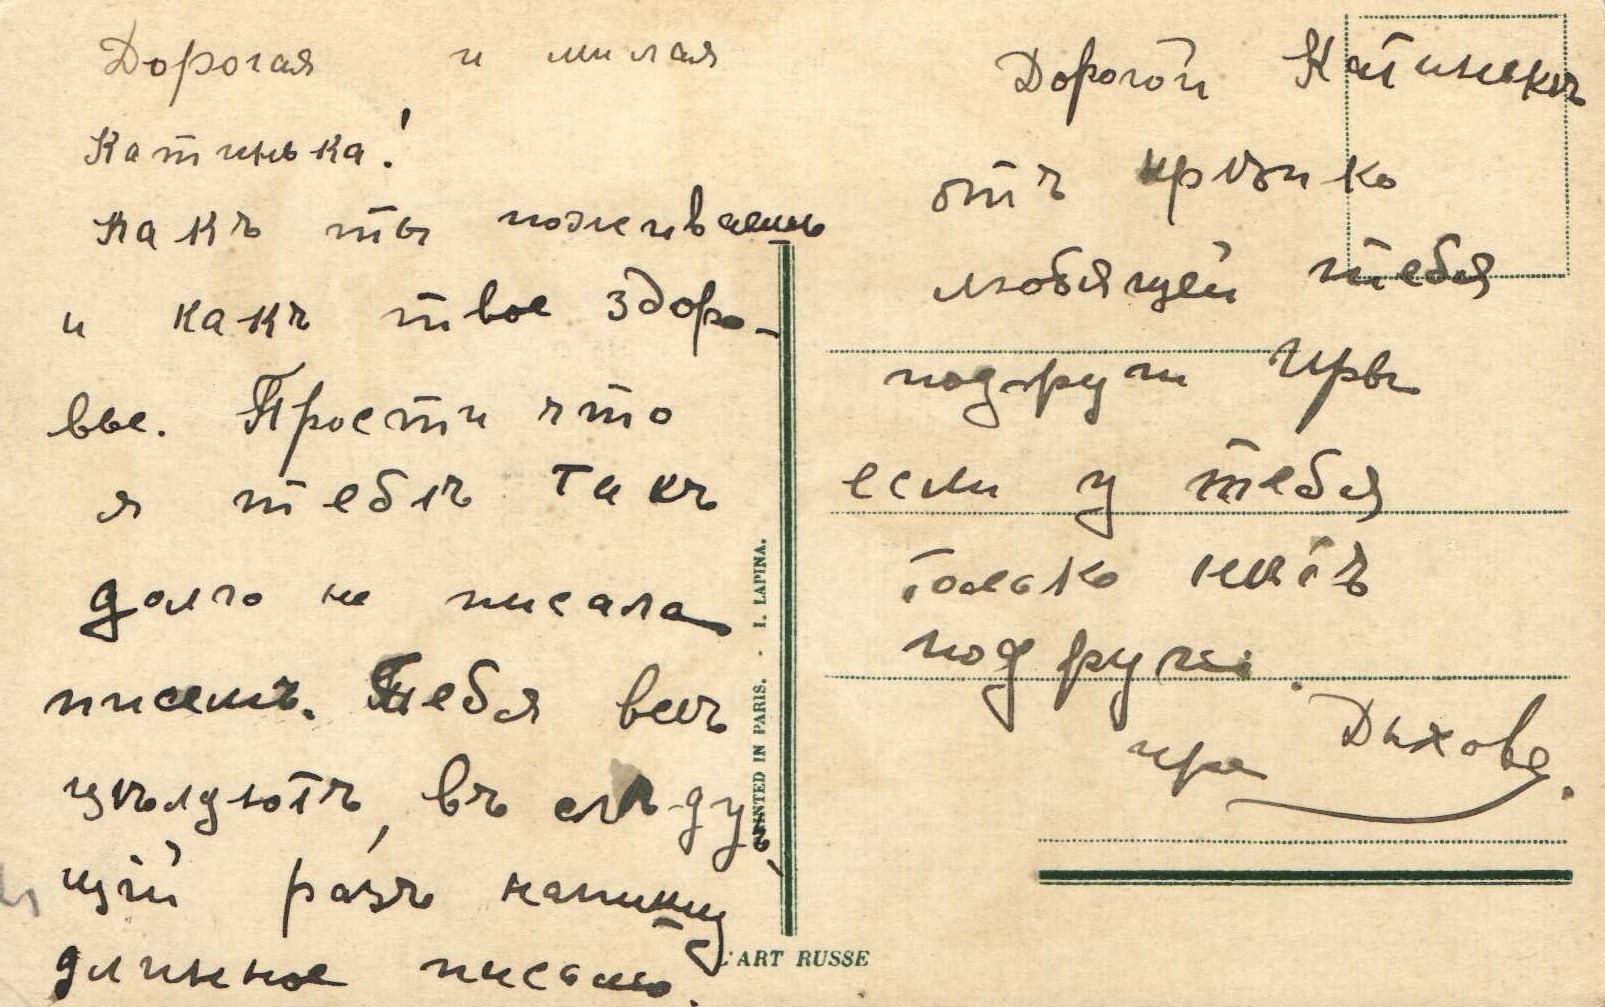 Дорогая и милая
Катинька!
какъ ты поживаешь
и какъ твое здоро-
вье. Прости что
я тебѣ такъ
долго не писала
писемъ. Тебя всѣ
цѣлуютъ, въ слѣдую-
щій разъ напишу
длинное письмо.
Дорогой Катинькѣ
отъ крѣпко
любящей тебя
подруги Иры
если у тебя
только нѣтъ
подруги.
Ира Дыхова.
PRINTED IN PARIS. - I. LAPINA.
L'ART RUSSE